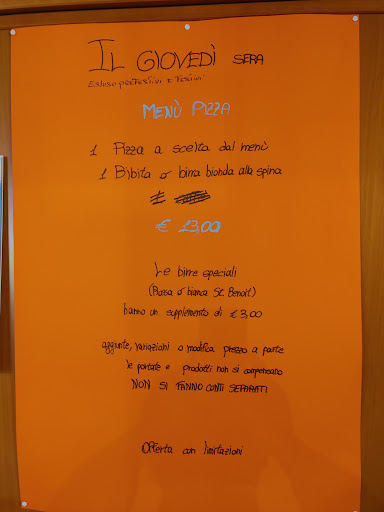 IL GIOVEDÌ SERA
Escluso prefestivi e festivi
MENÙ PIZZA
1 Pizza a scelta dal menù
1 Bibita o birra bionda alla spina
€ 13,00
Le birre speciali
(Rossa o bianca St. Benoit)
hanno un supplemento di € 3,00
aggiunte, variazioni o modifica prezzo a parte
le portate e prodotti non si compensano
NON SI FANNO CONTI SEPARATI
Offerta con limitazioni